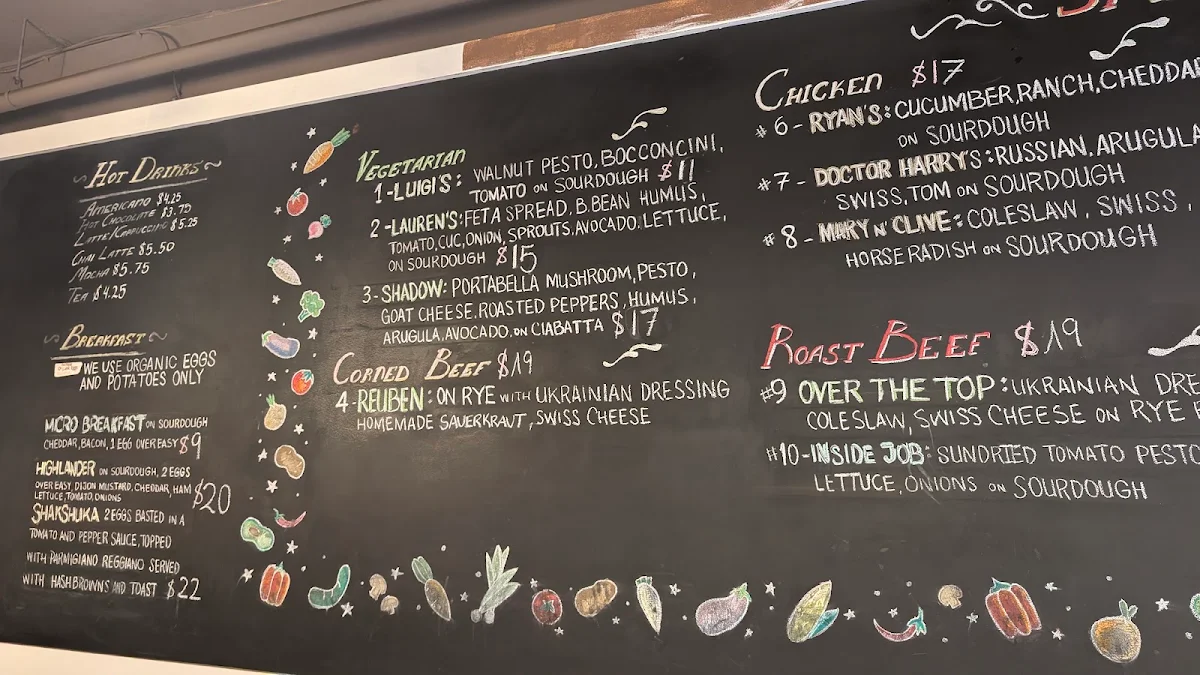 Hot Drinks
Americano $4.25
Hot Chocolate $3.75
Latte/Cappuccino $5.25
Chai Latte $5.50
Mocha $5.75
Tea $4.25
Breakfast
WE USE ORGANIC EGGS
AND POTATOES ONLY
MICRO BREAKFAST ON SOURDOUGH
CHEDDAR, BACON, 1 EGG OVER EASY $9
HIGHLANDER ON SOURDOUGH, 2 EGGS
OVER EASY, DIJON MUSTARD, CHEDDAR, HAM
LETTUCE, TOMATO, ONIONS $20
SHAKSHUKA 2 EGGS BASTED IN A
TOMATO AND PEPPER SAUCE, TOPPED
WITH PARMIGIANO REGGIANO SERVED
WITH HASHBROWNS AND TOAST $22
VEGETARIAN
1-LUIGI'S: WALNUT PESTO, BOCCONCINI,
TOMATO ON SOURDOUGH $11
2-LAUREN'S: FETA SPREAD, B.BEAN HUMUS,
TOMATO, CUC, ONION, SPROUTS, AVOCADO, LETTUCE,
ON SOURDOUGH $15
3-SHADOW: PORTABELLA MUSHROOM, PESTO,
GOAT CHEESE, ROASTED PEPPERS, HUMUS,
ARUGULA, AVOCADO, ON CIABATTA $17
CORNED BEEF $19
4-REUBEN: ON RYE WITH UKRAINIAN DRESSING
HOMEMADE SAUERKRAUT, SWISS CHEESE
CHICKEN $17
#6-RYAN'S: CUCUMBER, RANCH, CHEDDAR
ON SOURDOUGH
#7-DOCTOR HARRY'S: RUSSIAN, ARUGULA
SWISS, TOM ON SOURDOUGH
#8-MARY N' CLIVE: COLESLAW, SWISS,
HORSERADISH ON SOURDOUGH
ROAST BEEF $19
#9 OVER THE TOP: UKRAINIAN DRE
COLESLAW, SWISS CHEESE ON RYE
#10-INSIDE JOB: SUNDRIED TOMATO PESTO
LETTUCE, ONIONS ON SOURDOUGH